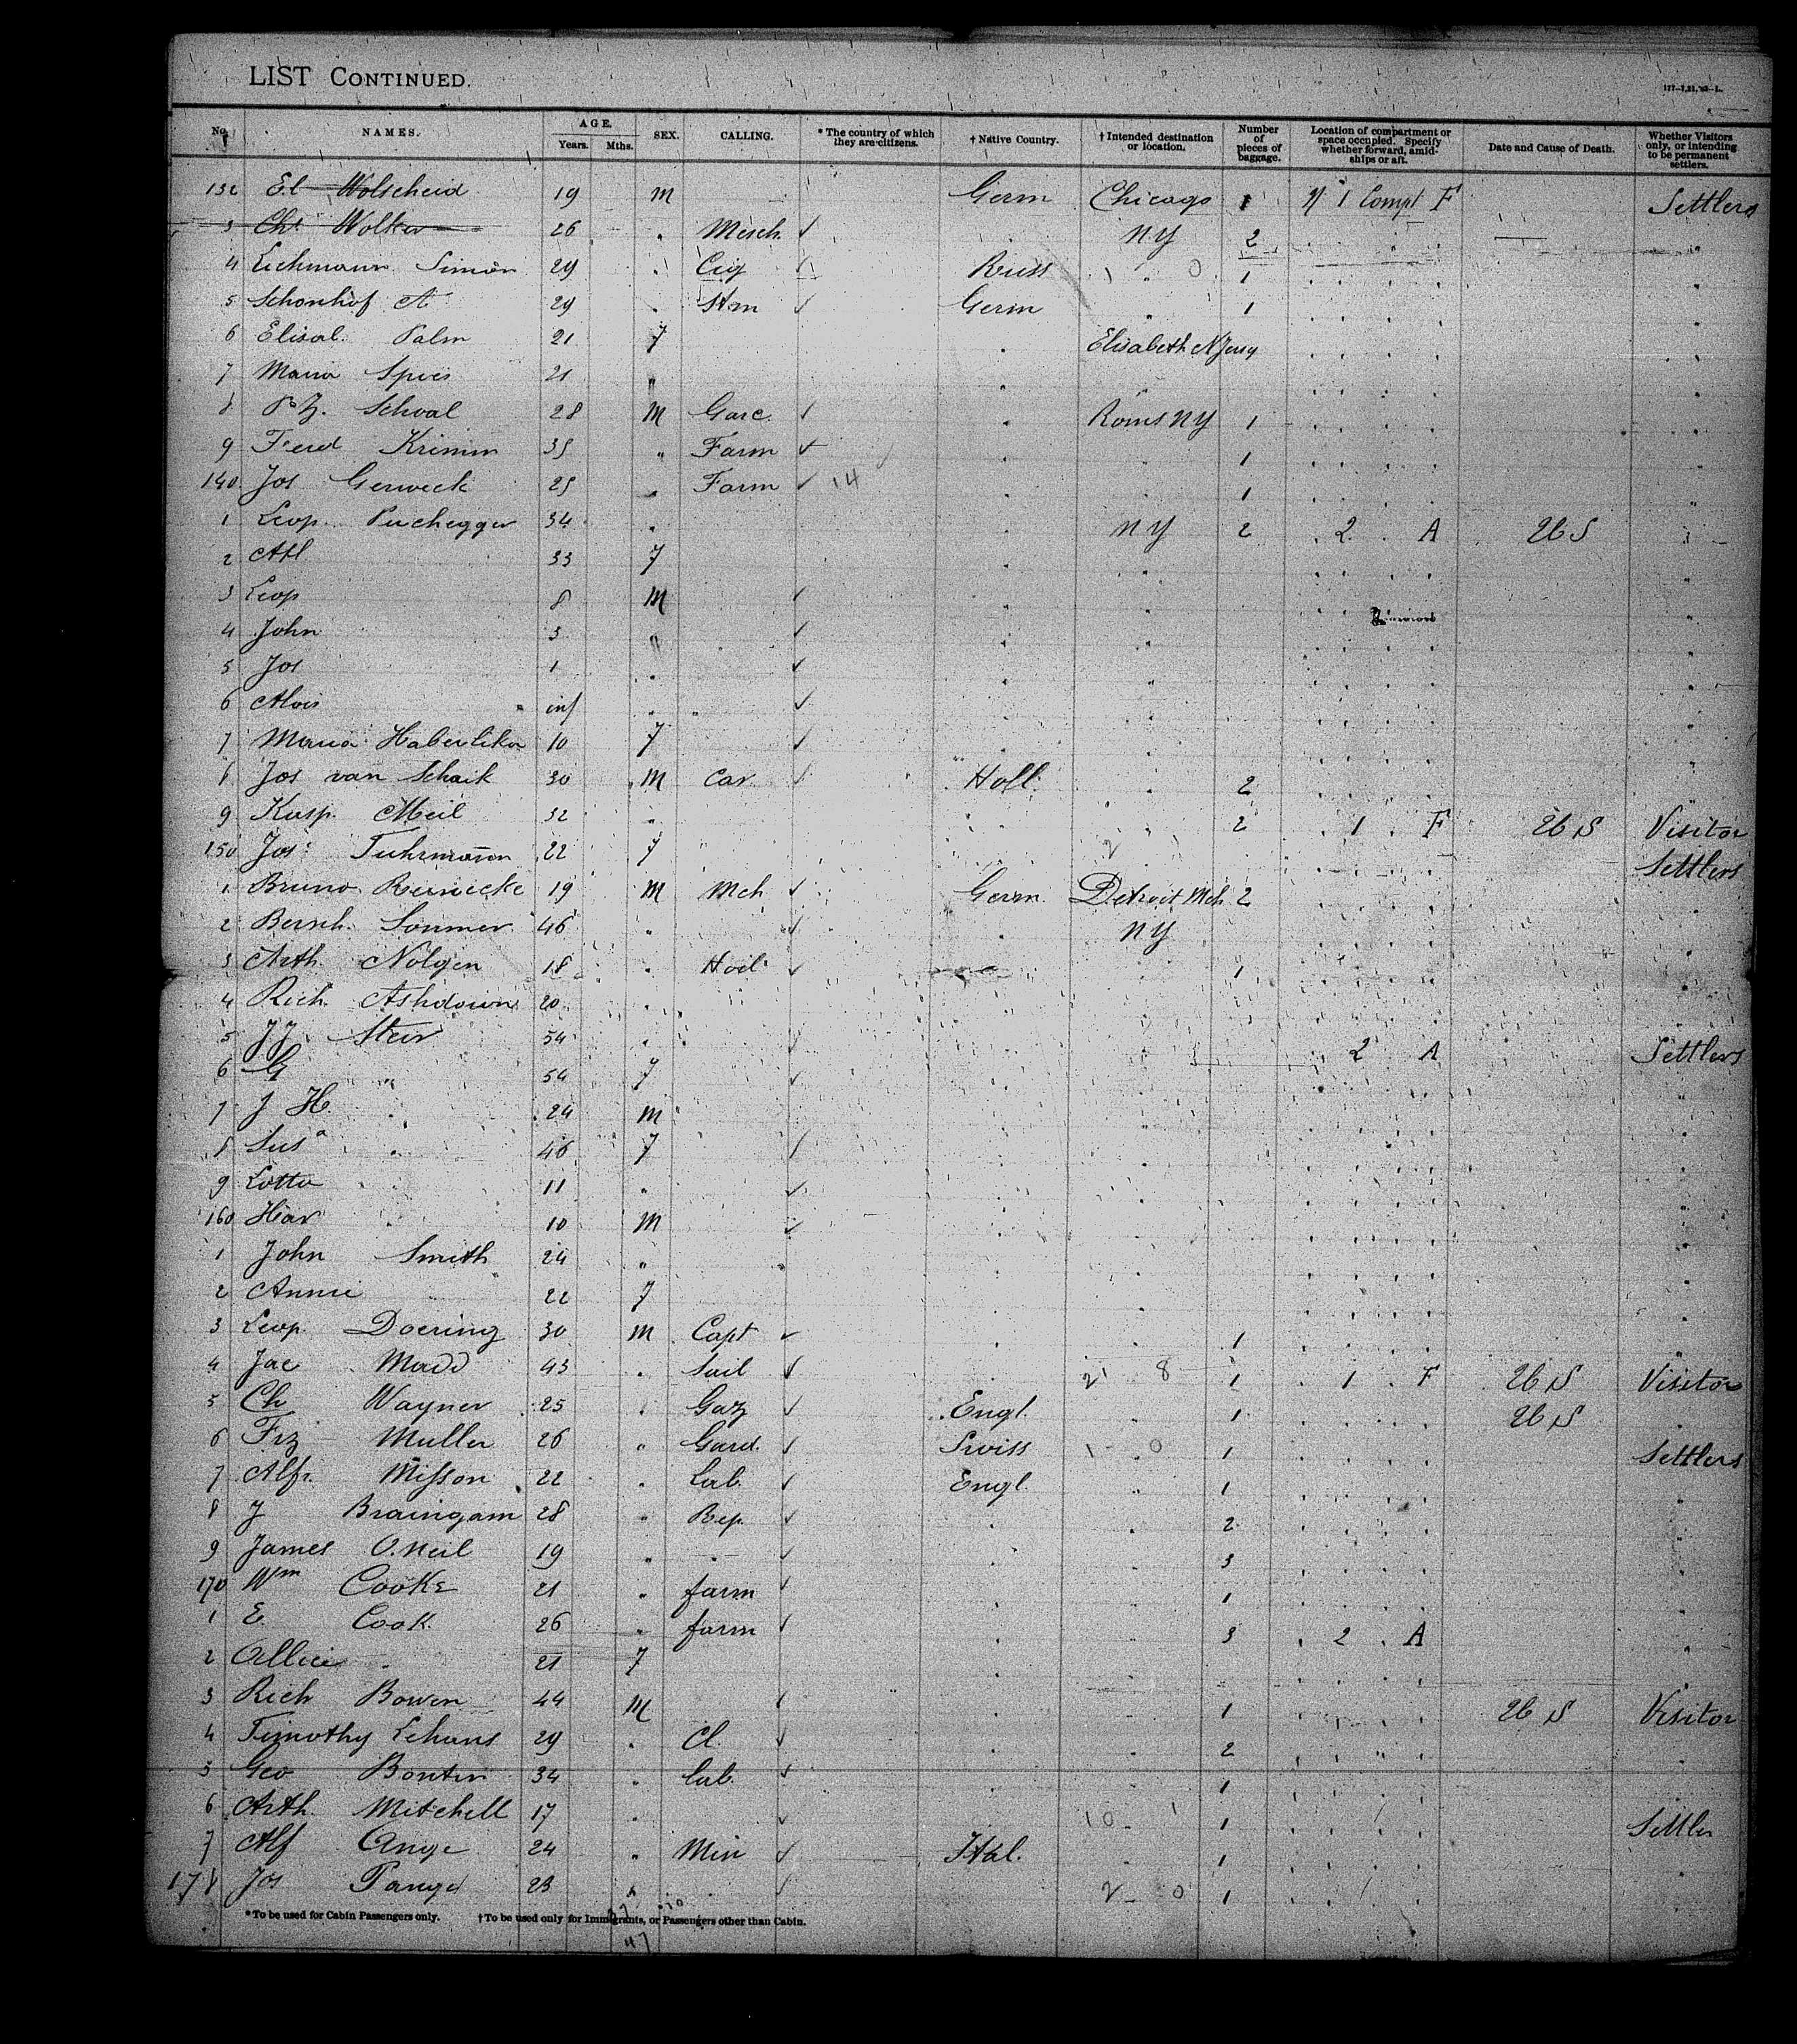 LIST CONTINUED.
No. NAMES. AGE. Years. Mths. SEX. CALLING. * The country of which they are citizens. † Native Country. † Intended destination or location. Number of pieces of baggage. Location of compartment or space occupied. Specify whether forward, amidships or aft. Date and Cause of Death. Whether Visitors only, or intending to be permanent settlers.
132 El Wolscheid 19 M Germ Chicago 1 1 Compt F Settlers
3 Chr Wolker 26 " Mesch. ✓ " NY 2
4 Eichmann Simon 29 " Cig ✓ Russ " 1
5 Schonhof A 29 " ✓ Germ " 1
6 Elisab. Palm 21 F " Elisabeth N Jersy
7 Maria Spies 21 " "
8 Schwal 28 M Gare ✓ " Roms NY 1
9 Ferd Krimm 35 " Farm ✓ " " 1
140 Jos Gerweck 25 " Farm ✓ 14 " " 1
1 Leop. Puchegger 34 " " NY 2 2 A 26 S
2 33 F " "
3 Leop 8 M ✓ " "
4 John 3 " ✓ " "
5 Jos 1 " ✓ " "
6 Alois " inf " " ✓ " "
7 Maria Haberlikn 10 F ✓ " "
8 Jos van Schaik 30 M Car ✓ Holl. " 2
9 Kasp. Meil 32 " " " 2 1 F 26 S Visitor
150 Jos. Fuhrmann 22 F " " Settlers
1 Bruno Reinecke 19 M Mch ✓ Germ. Detroit Mch 2
2 Bernh. Sommer 46 " ✓ " NY
3 Arth. Nolgen 18 " ✓ " 1
4 Rich. Ashdown 20 "
5 JJ Steir 54 " ✓ 2 A Settlers
6 G " 54 F ✓
7 J H " 24 M
8 Susa " 46 F ✓
9 Lotta " 11 " ✓
160 Har " 10 M ✓
1 John Smith 24 "
2 Annie 22 F
3 Leop. Doering 30 M Capt ✓ " " 1
4 Jac Madd 43 " Sail ✓ " 21 8 1 1 F 26 S Visitor
5 Ch Wayner 25 " Gaz ✓ Engl. " 1 26 S "
6 Frz Muller 26 " Gard. ✓ Swiss 1 - 0 1 Settlers
7 Alfr. Misson 22 " Lab. ✓ Engl. " 1
8 J Braingam 28 " Rep ✓ " " 2
9 James O.Neil 19 " " ✓ " " 3
170 Wm Cooke 21 " farm ✓ " " 1
1 E. Cook 26 " farm ✓ " " 3 2 A
2 Allice " 21 F
3 Rich Bowen 44 M ✓ " " 1 26 S Visitor
4 Timothy Lehans 29 " Cl. ✓ " " 2
5 Geo Bonten 34 " Lab. ✓ " " 1
6 Arth. Mitchell 17 " ✓ " 10 1 1 Settler
7 Alf Ange 24 " Min ✓ Ital. " 1
178 Jos Pange 23 " " ✓ 2 - 0 1
*To be used for Cabin Passengers only. †To be used only for Immigrants, or Passengers other than Cabin.
47